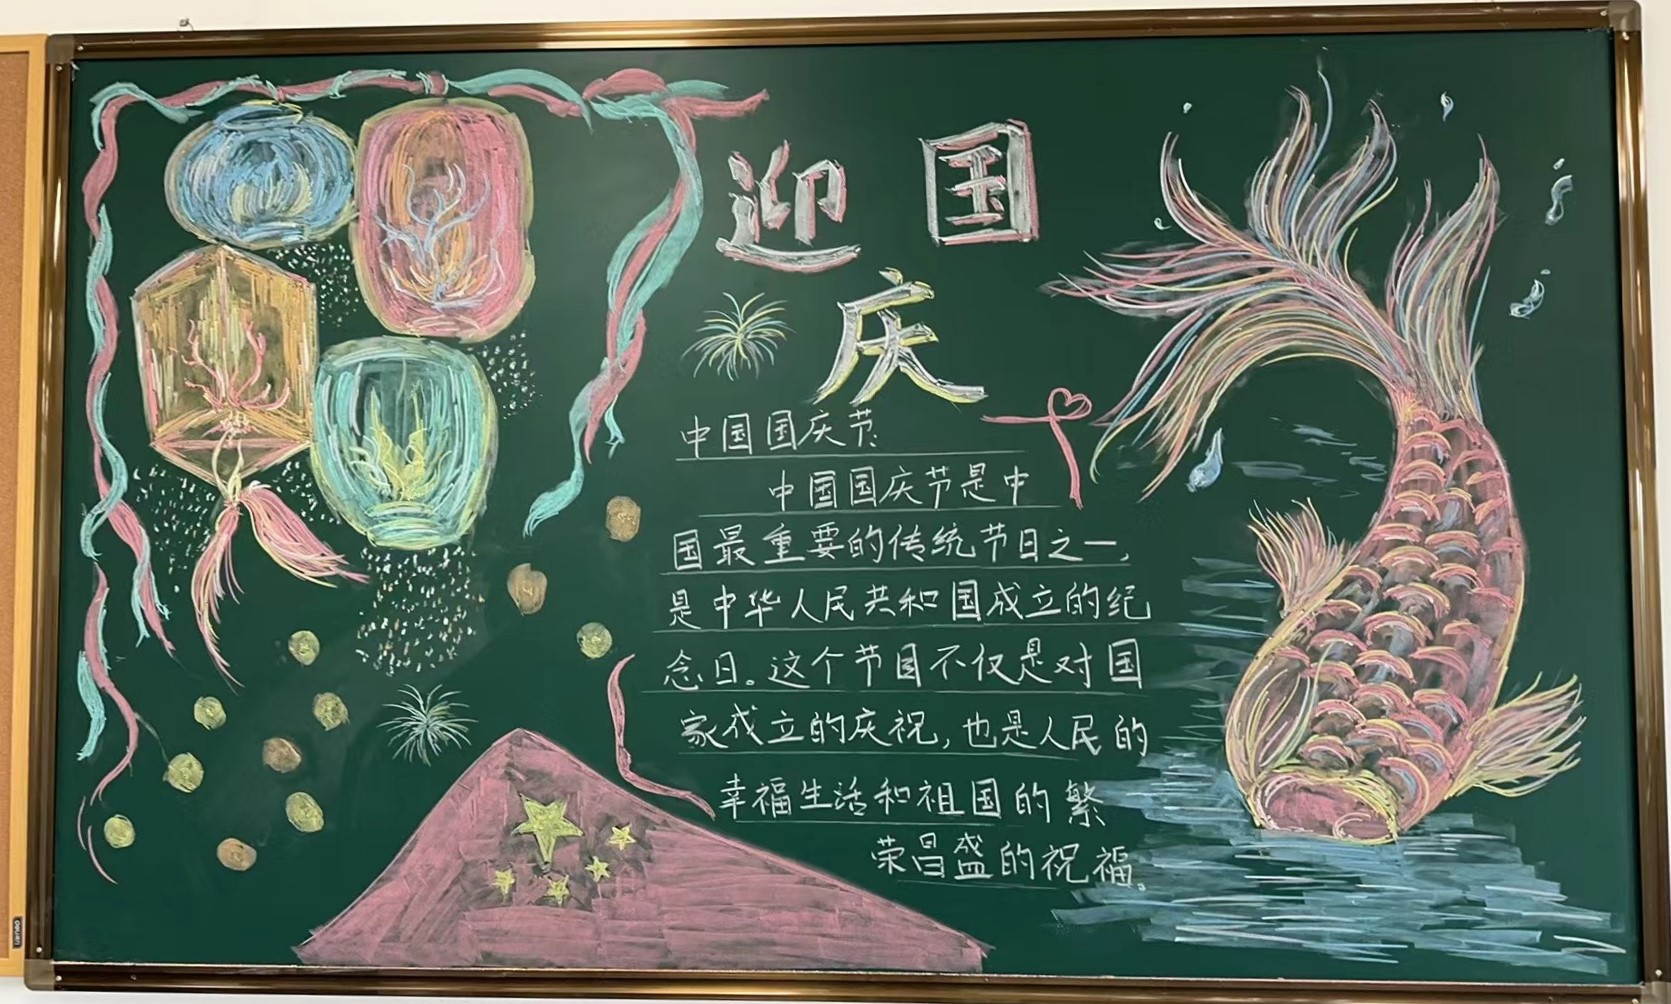 迎国
庆
中国国庆节:
中国国庆节是中
国最重要的传统节日之一,
是中华人民共和国成立的纪
念日。这个节日不仅是对国
家成立的庆祝,也是人民的
幸福生活和祖国的繁
荣昌盛的祝福。
deli